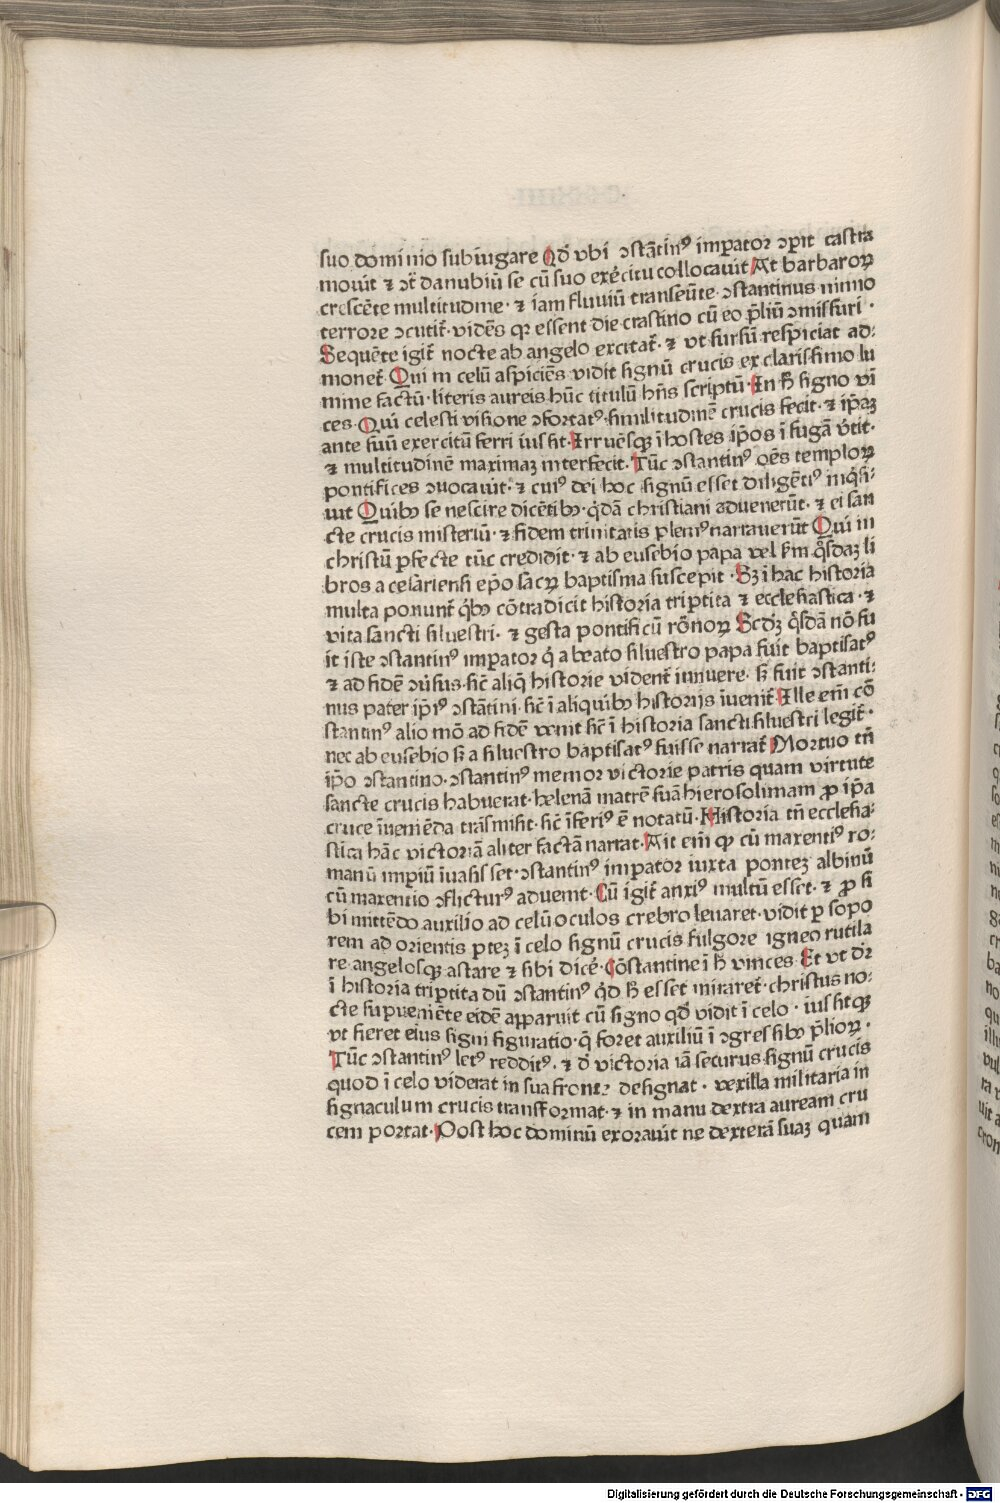 suo dominio subiugare Qd' vbi ꝯstātinꝰ imꝑator ꝯꝑit castra
mouit ⁊ ꝯt̄ danubiū se cū suo exercitu collocauit At barbaroꝝ
crescēte multitudine· ⁊ iam fluuiū transeūte· ꝯstantinus nimio
terrore ꝯcutit̄· vidēs ꝙ essent die crastino cū eo p̄liū ꝯmissuri ·
Sequēte igit̄ nocte ab angelo excitat̄· ⁊ vt sursū respiciat ad-
monet̄ Qui in celū aspiciēs vidit signū crucis ex clarissimo lu
mine factū· literis aureis hūc titulū hn̄s scriptū· In h̄ signo vī
ces· Qui celesti visione ꝯfortatꝰ· similitudinē crucis fecit· ⁊ ip̄aꝫ
ante suū exercitū ferri iussit· Irruēsqꝫ ī hostes ip̄os ī fugā v̄tit·
⁊ multitudinē maximaꝫ interfecit· Tūc ꝯstantinꝰ oēs temploꝝ
pontifices ꝯuocauit· ⁊ cuiꝰ dei hoc signū esset diligētiꝰ inq̇si-
uit Quibꝰ se nescire dicētibꝰ· q̇dā christiani aduenerūt· ⁊ ei san
cte crucis misteriū· ⁊ fidem trinitatis pleniꝰ narrauerūt Qui in
christū ꝑfecte tūc credidit· ⁊ ab eusebio papa vel sm̄ q̊sdaꝫ li
bros a cesariensi ep̄o sacꝝ baptisma suscepit · Sꝫ ī hac historia
multa ponunt̄ q̇bꝰ cōtradicit historia triꝑtita ⁊ ecclesiastica · ⁊
vita sancti siluestri· ⁊ gesta pontificū rōnoꝝ Scd'ꝫ q̊sdā nō fu
it iste ꝯstantinꝰ imꝑator q̇ a beato siluestro papa fuit baptisatꝰ
⁊ ad fidē ꝯu̇sus· sic̄ aliq̄ historie vident̄ innuere· sꝫ fuit ꝯstanti-
nus pater ip̄iꝰ ꝯstātini· sic̄ ī aliquibꝰ historijs īuenit̄ Ille em̄ cō
stantinꝰ alio mō ad fidē venit sic̄ ī historia sancti siluestri legit̄·
nec ab eusebio sꝫ a siluestro baptisatꝰ fuisse narrat̄ Mortuo tn̄
ip̄o ꝯstantino· ꝯstantinꝰ memor victorie patris quam virtute
sancte crucis habuerat· helenā matrē suā hierosolimam ꝓ ip̄a
cruce īueniēda trāsmisit· sic̄ īferiꝰ ē notatū· Historia tn̄ ecclesia-
stica hāc victoriā aliter factā narrat· Ait em̄ ꝙ cū maxentiꝰ ro-
manū imꝑiū īuasisset· ꝯstantinꝰ imꝑator iuxta ponteꝫ albinū
cū maxentio ꝯflicturꝰ aduenit· Cū igit̄ anxiꝰ multū esset· ⁊ ꝓ si
bi mittēdo auxilio ad celū oculos crebro leuaret· vidit ꝑ sopo
rem ad orientis ꝑteꝫ ī celo signū crucis fulgore igneo rutila
re angelosqꝫ astare ⁊ sibi dicē· Cōstantine ī h̄ vinces Et vt dr̄
ī historia triꝑtita dū ꝯstantinꝰ q̇d h̄ esset miraret̄· christus no-
cte suꝑueniēte eidē apparuit cū signo qd' vidit ī celo · iussitqꝫ
vt fieret eius signi figuratio· q̄ foret auxiliū ī ꝯgressibꝰ p̄lioꝝ ·
Tūc ꝯstantinꝰ letꝰ redditꝰ· ⁊ d' victoria iā securus· signū crucis
quod ī celo viderat in sua fronte designat · vexilla militaria in
signaculum crucis transformat· ⁊ in manu dextra auream cru
cem portat· Post hoc dominū exorauit ne dexterā suaꝫ quam
Digitalisierung gefördert durch die Deutsche Forschungsgemeinschaft - DFG